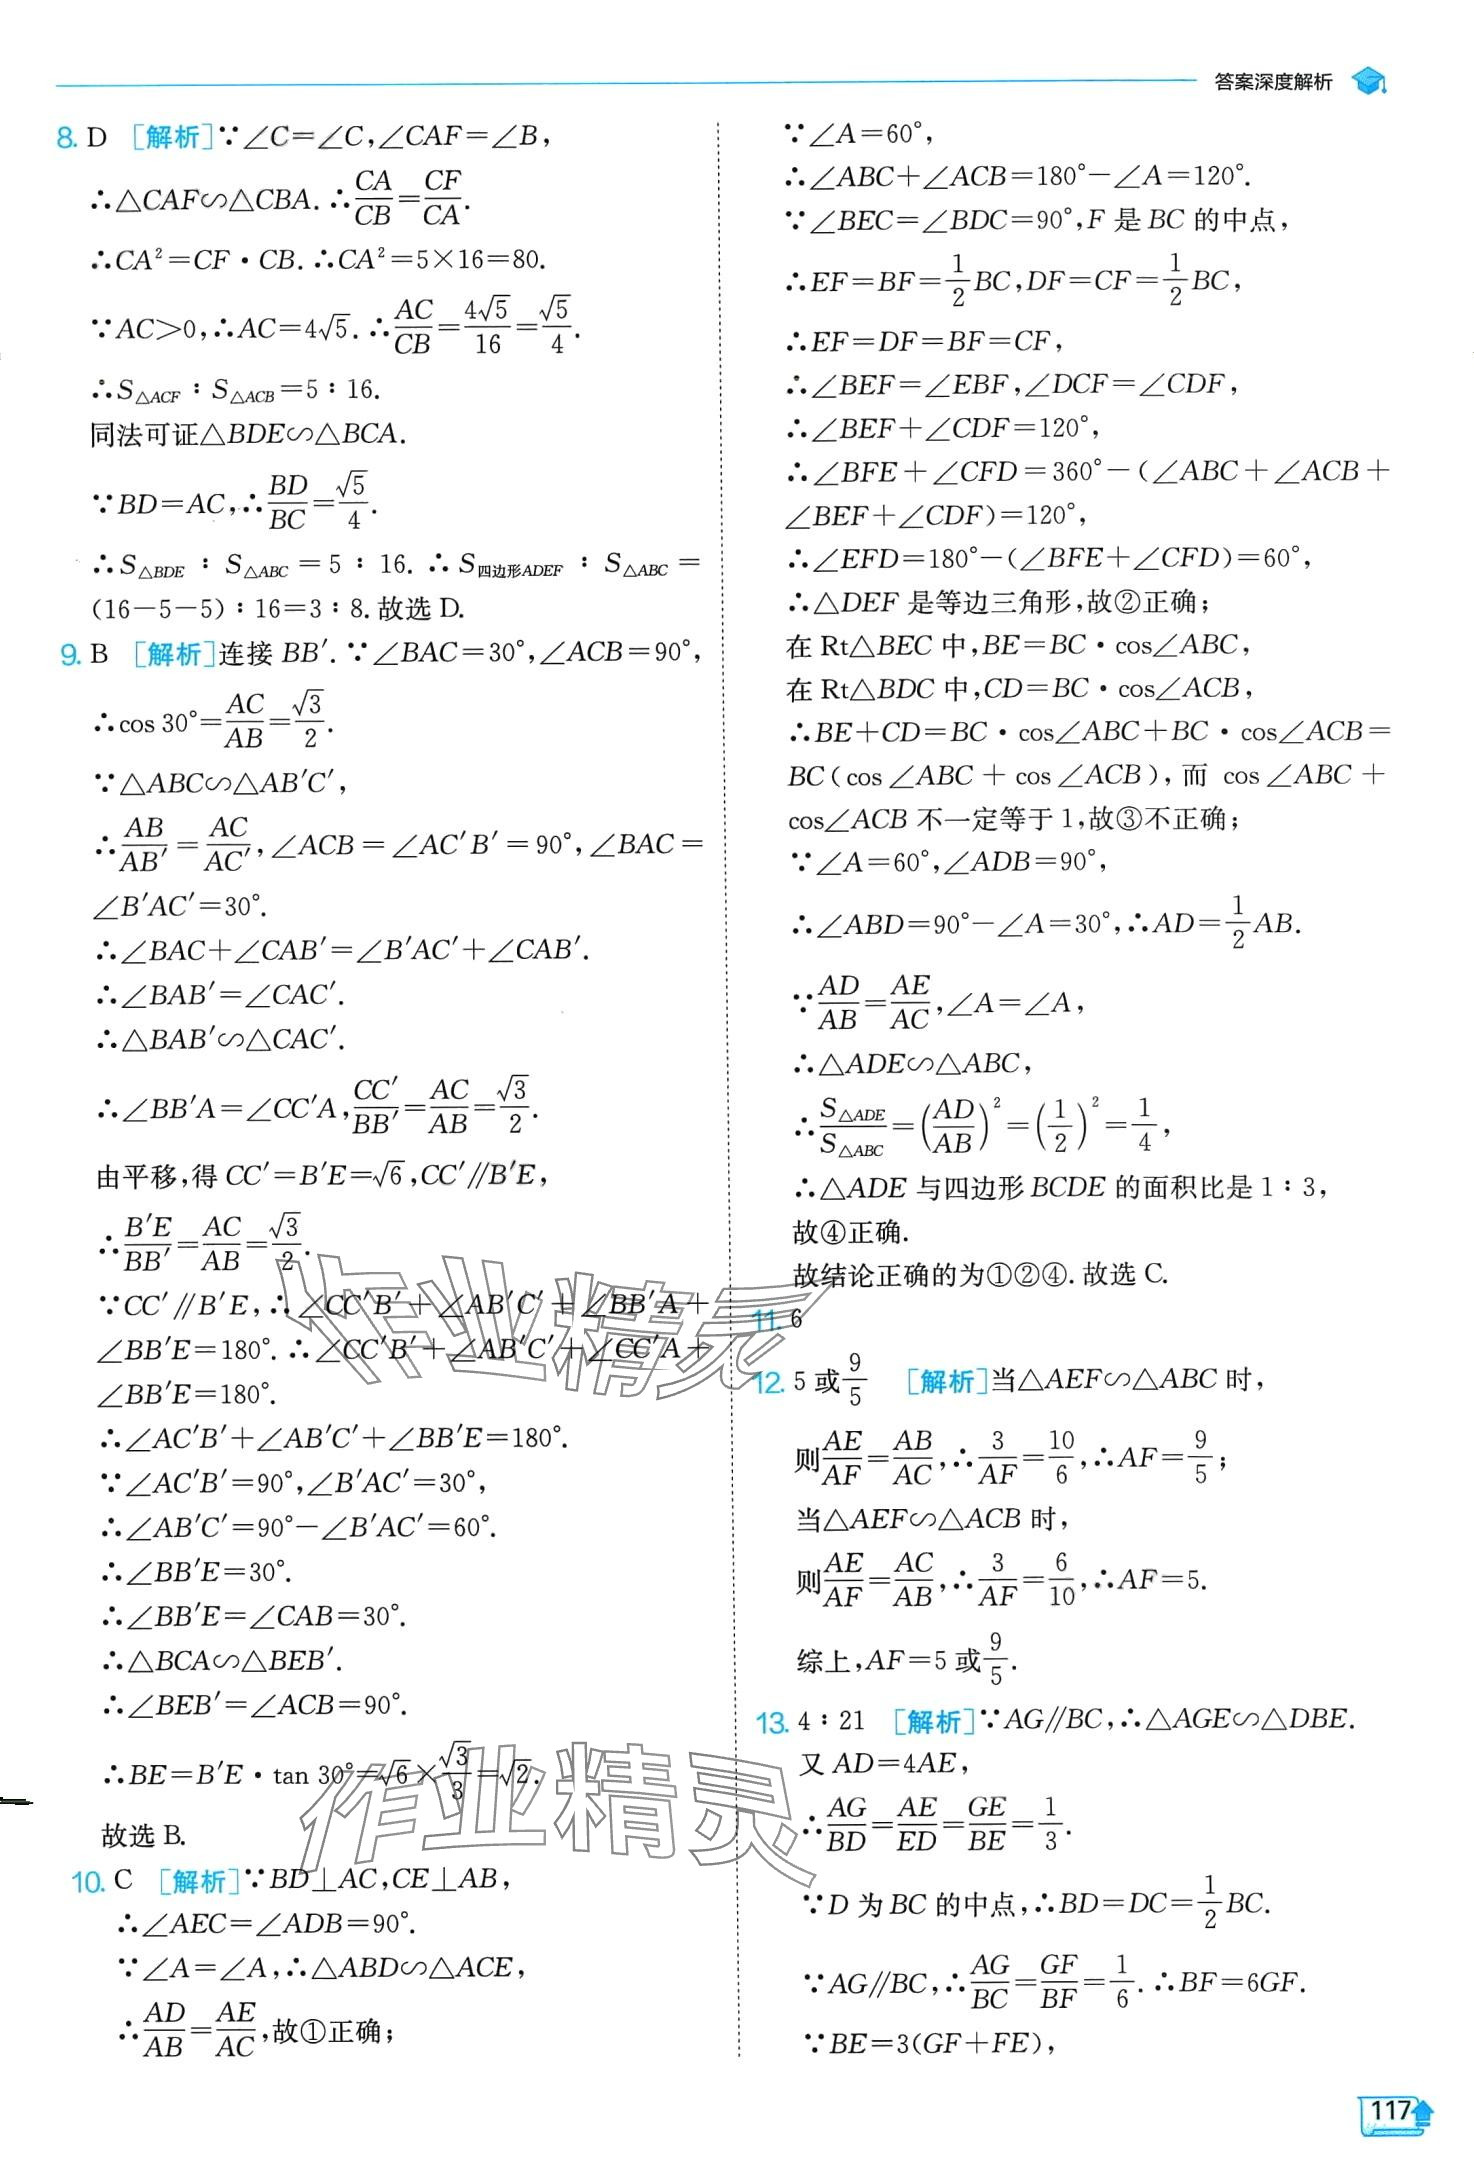 答案深度解析
8. D [解析]∵∠C=∠C,∠CAF=∠B,
∴△CAF∽△CBA. ∴CA/CB=CF/CA.
∴CA²=CF·CB. ∴CA²=5×16=80.
∵AC>0,∴AC=4√5. ∴AC/CB=4√5/16=√5/4.
∴S△ACF：S△ACB=5：16.
同法可证△BDE∽△BCA.
∵BD=AC,∴BD/BC=√5/4.
∴S△BDE：S△ABC=5：16. ∴S四边形ADEF：S△ABC=
(16-5-5)：16=3：8. 故选 D.
9. B [解析]连接 BB′. ∵∠BAC=30°,∠ACB=90°,
∴cos 30°=AC/AB=√3/2.
∵△ABC∽△AB′C′,
∴AB/AB′=AC/AC′,∠ACB=∠AC′B′=90°,∠BAC=
∠B′AC′=30°.
∴∠BAC+∠CAB′=∠B′AC′+∠CAB′.
∴∠BAB′=∠CAC′.
∴△BAB′∽△CAC′.
∴∠BB′A=∠CC′A,CC′/BB′=AC/AB=√3/2.
由平移,得 CC′=B′E=√6,CC′∥B′E,
∴B′E/BB′=AC/AB=√3/2.
∵CC′∥B′E,∴∠CC′B′+∠AB′C′+∠BB′A+
∠BB′E=180°. ∴∠CC′B′+∠AB′C′+∠CC′A+
∠BB′E=180°.
∴∠AC′B′+∠AB′C′+∠BB′E=180°.
∵∠AC′B′=90°,∠B′AC′=30°,
∴∠AB′C′=90°-∠B′AC′=60°.
∴∠BB′E=30°.
∴∠BB′E=∠CAB=30°.
∴△BCA∽△BEB′.
∴∠BEB′=∠ACB=90°.
∴BE=B′E·tan 30°=√6×√3/3=√2.
故选 B.
10. C [解析]∵BD⊥AC,CE⊥AB,
∴∠AEC=∠ADB=90°.
∵∠A=∠A,∴△ABD∽△ACE,
∴AD/AB=AE/AC,故①正确;
∵∠A=60°,
∴∠ABC+∠ACB=180°-∠A=120°.
∵∠BEC=∠BDC=90°,F 是 BC 的中点,
∴EF=BF=1/2BC,DF=CF=1/2BC,
∴EF=DF=BF=CF,
∴∠BEF=∠EBF,∠DCF=∠CDF,
∴∠BEF+∠CDF=120°,
∴∠BFE+∠CFD=360°-(∠ABC+∠ACB+
∠BEF+∠CDF)=120°,
∴∠EFD=180°-(∠BFE+∠CFD)=60°,
∴△DEF 是等边三角形,故②正确;
在 Rt△BEC 中,BE=BC·cos∠ABC,
在 Rt△BDC 中,CD=BC·cos∠ACB,
∴BE+CD=BC·cos∠ABC+BC·cos∠ACB=
BC(cos∠ABC+cos∠ACB),而 cos∠ABC+
cos∠ACB 不一定等于 1,故③不正确;
∵∠A=60°,∠ADB=90°,
∴∠ABD=90°-∠A=30°,∴AD=1/2AB.
∵AD/AB=AE/AC,∠A=∠A,
∴△ADE∽△ABC,
∴S△ADE/S△ABC=(AD/AB)²=(1/2)²=1/4,
∴△ADE 与四边形 BCDE 的面积比是 1：3,
故④正确.
故结论正确的为①②④. 故选 C.
11. 6
12. 5 或 9/5 [解析]当△AEF∽△ABC 时,
则AE/AF=AB/AC,∴3/AF=10/6,∴AF=9/5;
当△AEF∽△ACB 时,
则AE/AF=AC/AB,∴3/AF=6/10,∴AF=5.
综上,AF=5 或 9/5.
13. 4：21 [解析]∵AG∥BC,∴△AGE∽△DBE.
又 AD=4AE,
∴AG/BD=AE/ED=GE/BE=1/3.
∵D 为 BC 的中点,∴BD=DC=1/2BC.
∵AG∥BC,∴AG/BC=GF/BF=1/6. ∴BF=6GF.
∵BE=3(GF+FE),
作业精灵
作业精灵
117